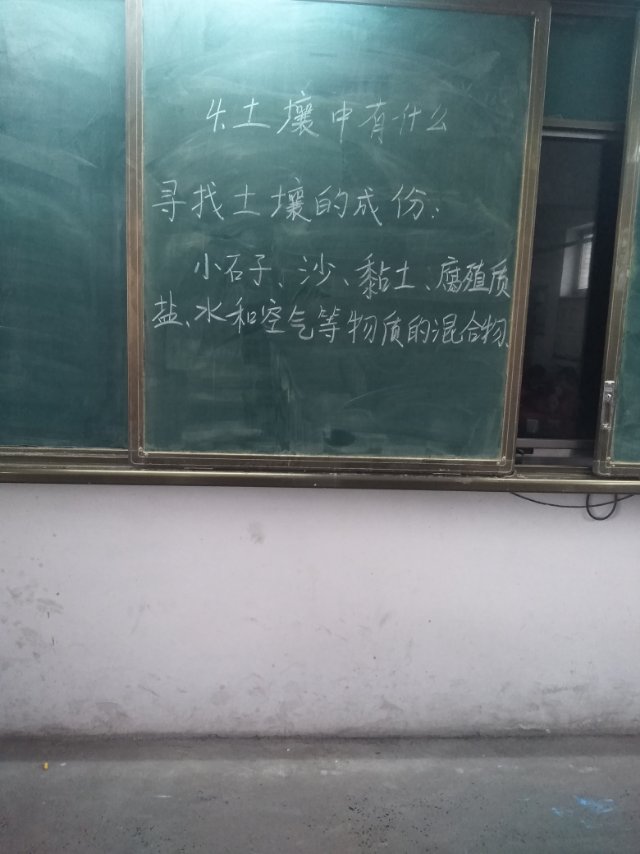 4.土壤中有什么
寻找土壤的成份:
小石子、沙、黏土、腐殖质
盐、水和空气等物质的混合物